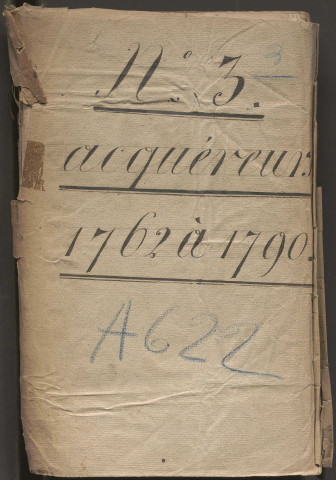 3
N° 3.
acquéreurs
1762 à 1790.
A622